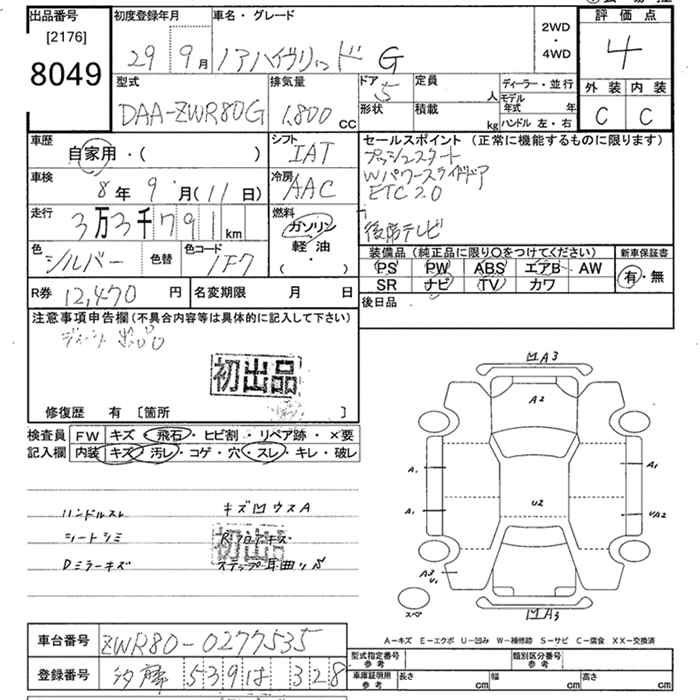 出品番号
[2176]
8049
初度登録年月
29年9月
車名・グレード
ノアハイブリッド G
2WD
・
4WD
評価点
4
外装 内装
C C
型式
DAA-ZWR80G
排気量
1,800 cc
ドア
5
形状
定員
人
積載
kg
ディーラー・並行
モデル年式 年
ハンドル 左・右
車歴
自家用・( )
シフト
IAT
車検
8年9月(11日)
冷房
AAC
走行
3万3千791km
燃料
ガソリン
軽油
( ・ )
色
シルバー
色替
色コード
1F7
セールスポイント (正常に機能するものに限ります)
プッシュスタート
Wパワースライドドア
ETC2.0
後席テレビ
装備品 (純正品に限り○をつけてください)
PS PW ABS エアB AW
SR ナビ TV カワ
新車保証書
有・無
R券 12,470円
名変期限 月 日
後日品
注意事項申告欄(不具合内容等は具体的に記入して下さい)
初出品
修復歴 有 [箇所 ]
検査員記入欄
FW キズ・飛石・ヒビ割・リペア跡・×要
内装 キズ・汚レ・コゲ・穴・スレ・キレ・破レ
ハンドルスレ
シートシミ
Dミラーキズ
キズ凹ウスA
初出品
凹A3
A2
A1
A1
A1
U2
UA2
A3
U1
スペア
凹A3
A-キズ E-エクボ U-凹み W-補修跡 S-サビ C-腐食 XX-交換済
車台番号
ZWR80-0277535
登録番号
539 は 328
型式指定番号
参考
類別区分番号
参考
車庫証明用
参考
長さ cm
幅 cm
高さ cm